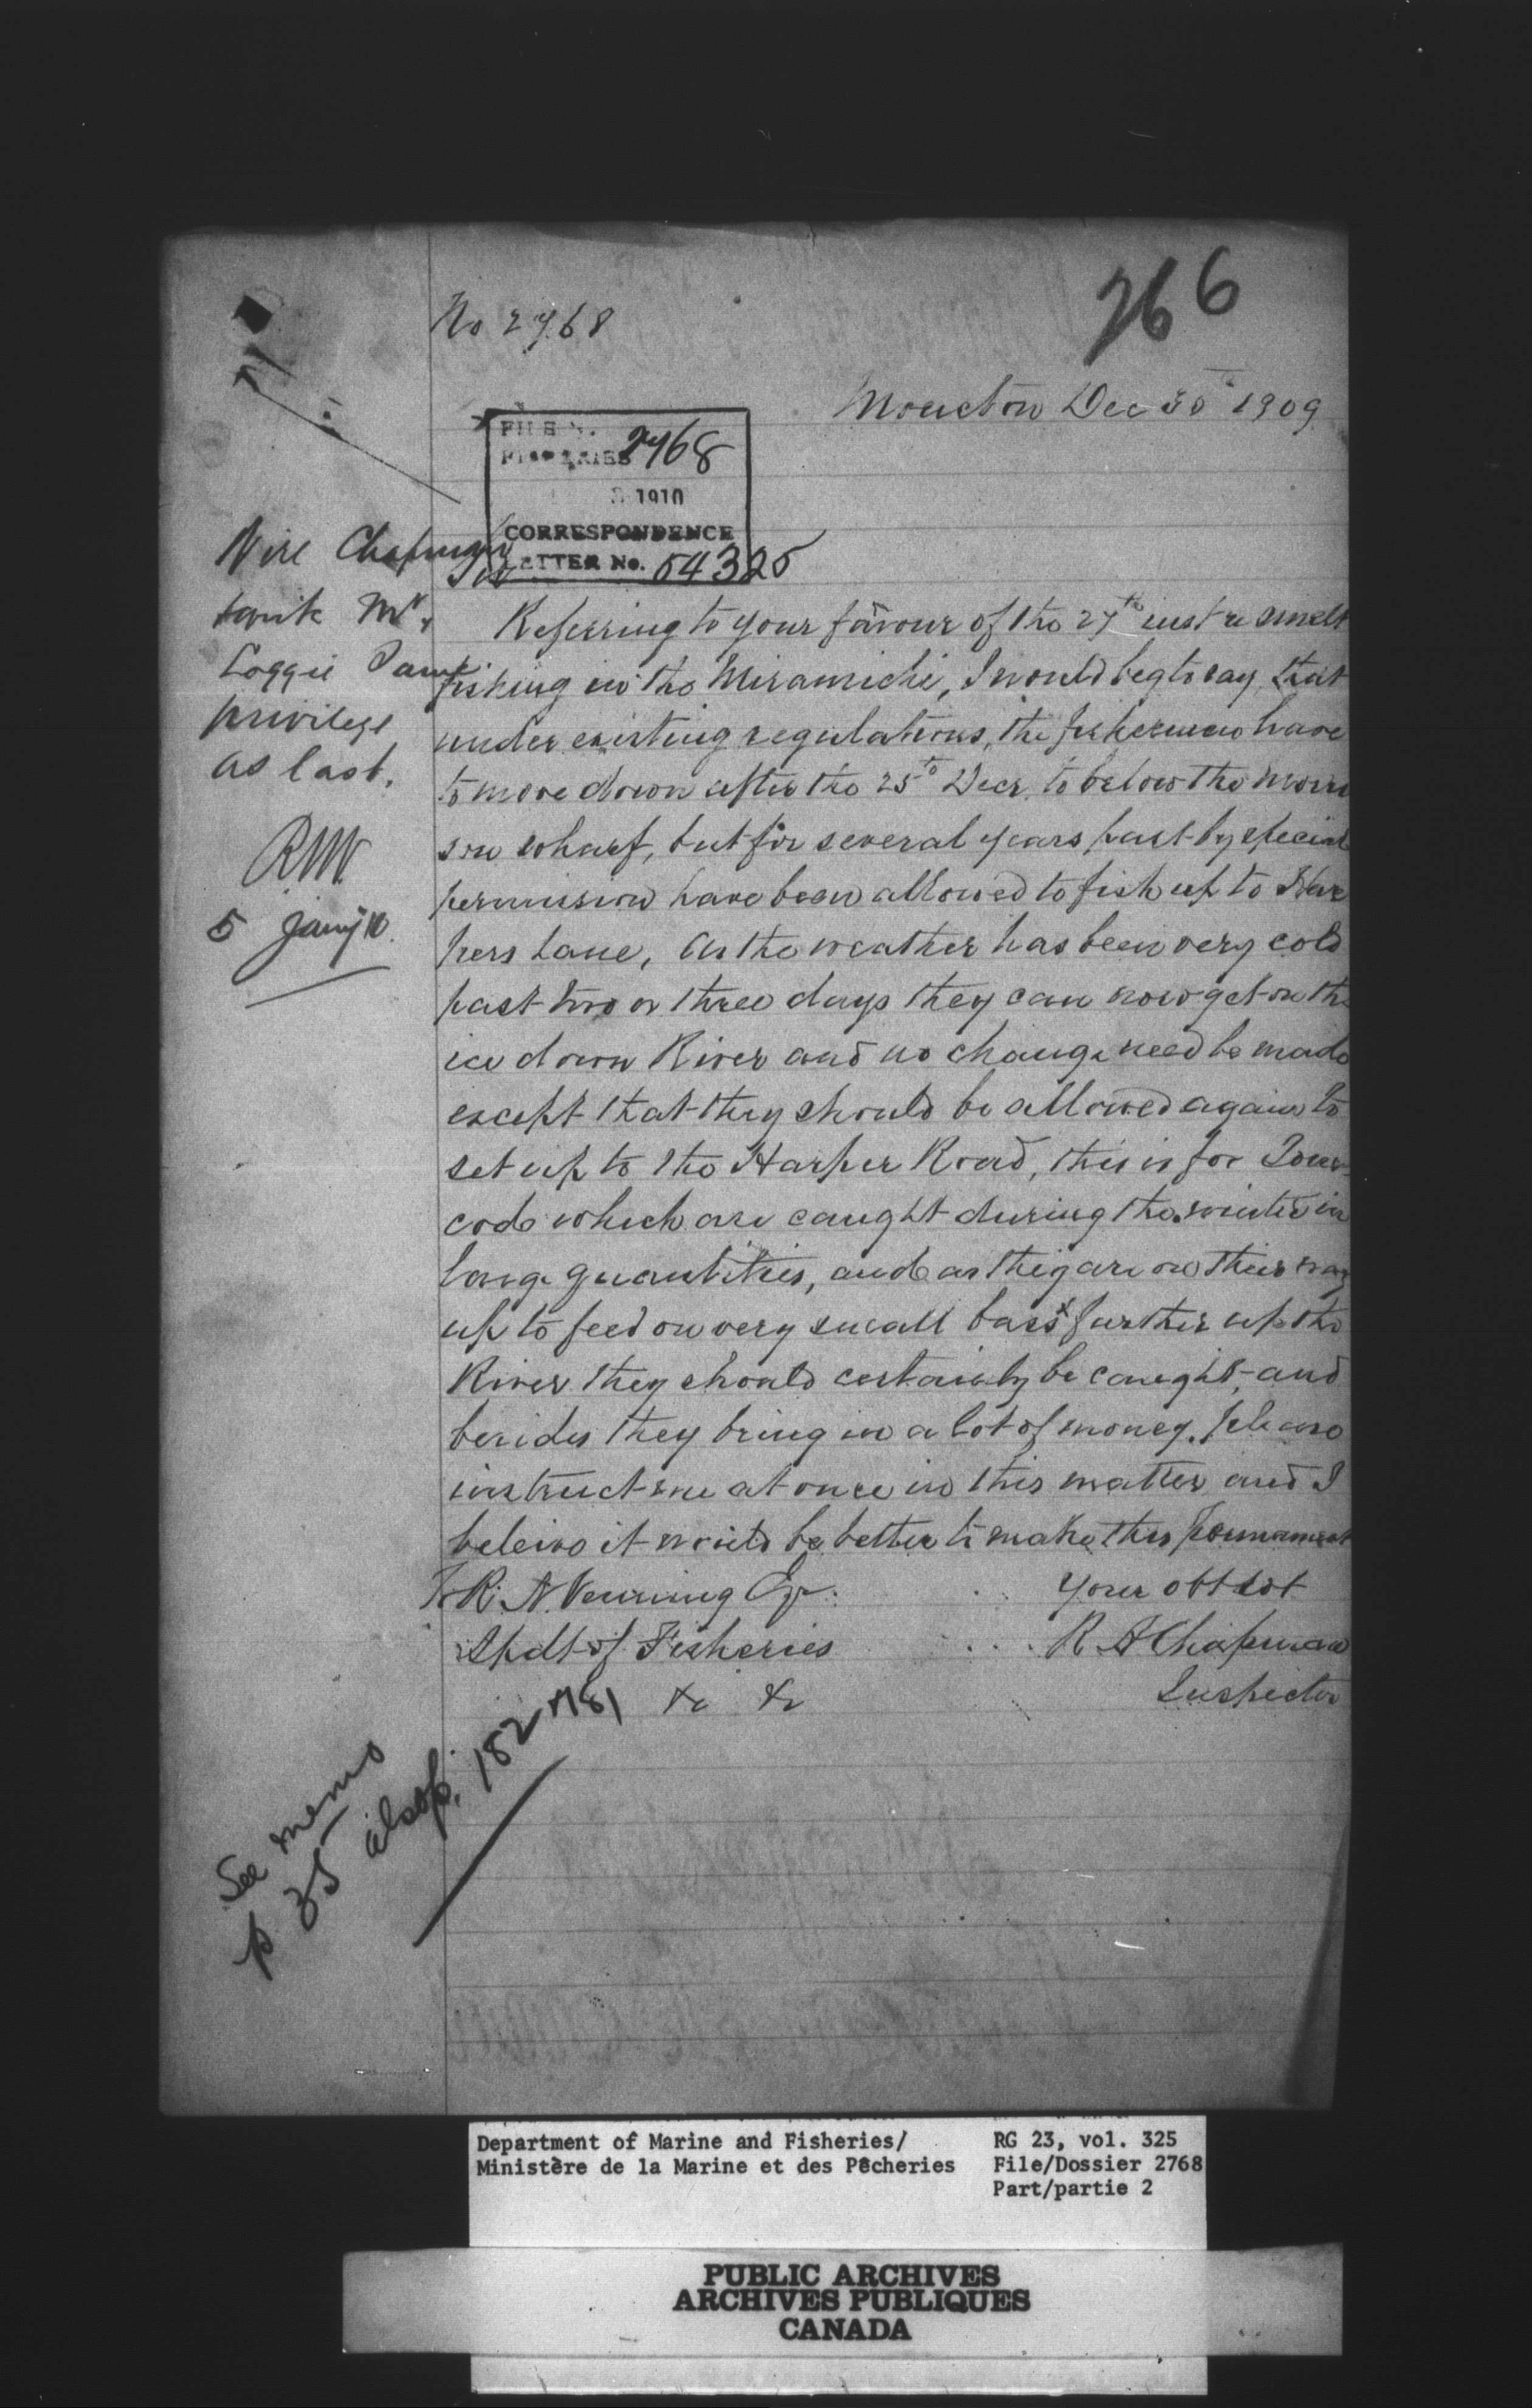 266
No 2768
Moncton Dec 30 1909
FILE N.
FISHERIES 2768
1910
CORRESPONDENCE
LETTER No. 54325
Wire Chapman
write Mr.
Loggie Same
privilege
as last.
RNV
5 Jany 10.
Sir
Referring to your favour of the 27th inst re smelt
fishing in the Miramichi, I would beg to say, that
under existing regulations, the fishermen have
to move down after the 25th Decr. to below the Morri
son wharf, but for several years past by special
permission have been allowed to fish up to Har
pers Lane, As the weather has been very cold
past two or three days they can now get on the
ice down River and no change need be made
except that they should be allowed again to
set up to the Harper Road, this is for Tom
cods which are caught during the winter in
large quantities, and as they are on their way
up to feed on very small bass x further up the
River they should certainly be caught, and
besides they bring in a lot of money. please
instruct me at once in this matter and I
beleive it would be better to make this permanent
To R. N. Venning Esq. your obt svt
Spdt of Fisheries R A Chapman
&c &c Inspector
See memo
p 35 also p. 182 & 181
Department of Marine and Fisheries/ RG 23, vol. 325
Ministère de la Marine et des Pêcheries File/Dossier 2768
Part/partie 2
PUBLIC ARCHIVES
ARCHIVES PUBLIQUES
CANADA